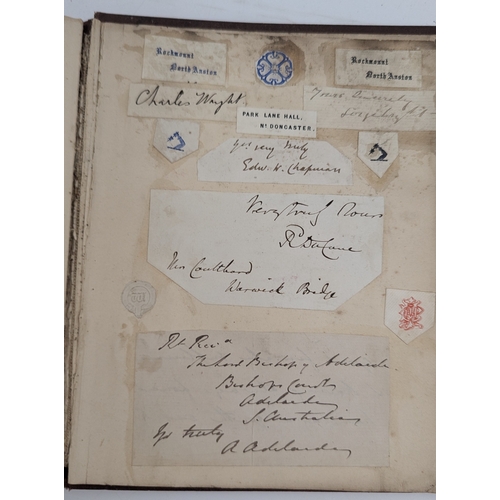 Rockmount
North Anston
Rockmount
North Anston
Charles Wright
PARK LANE HALL,
Nr DONCASTER.
Yrs very truly
Edw. W. Chapman
Very truly Yours
Mrs Coulthard
Warwick Bridge
Rt Revd
The Lord Bishop of Adelaide
Bishops Court
Adelaide
S. Australia
Yrs truly
A Adelaide